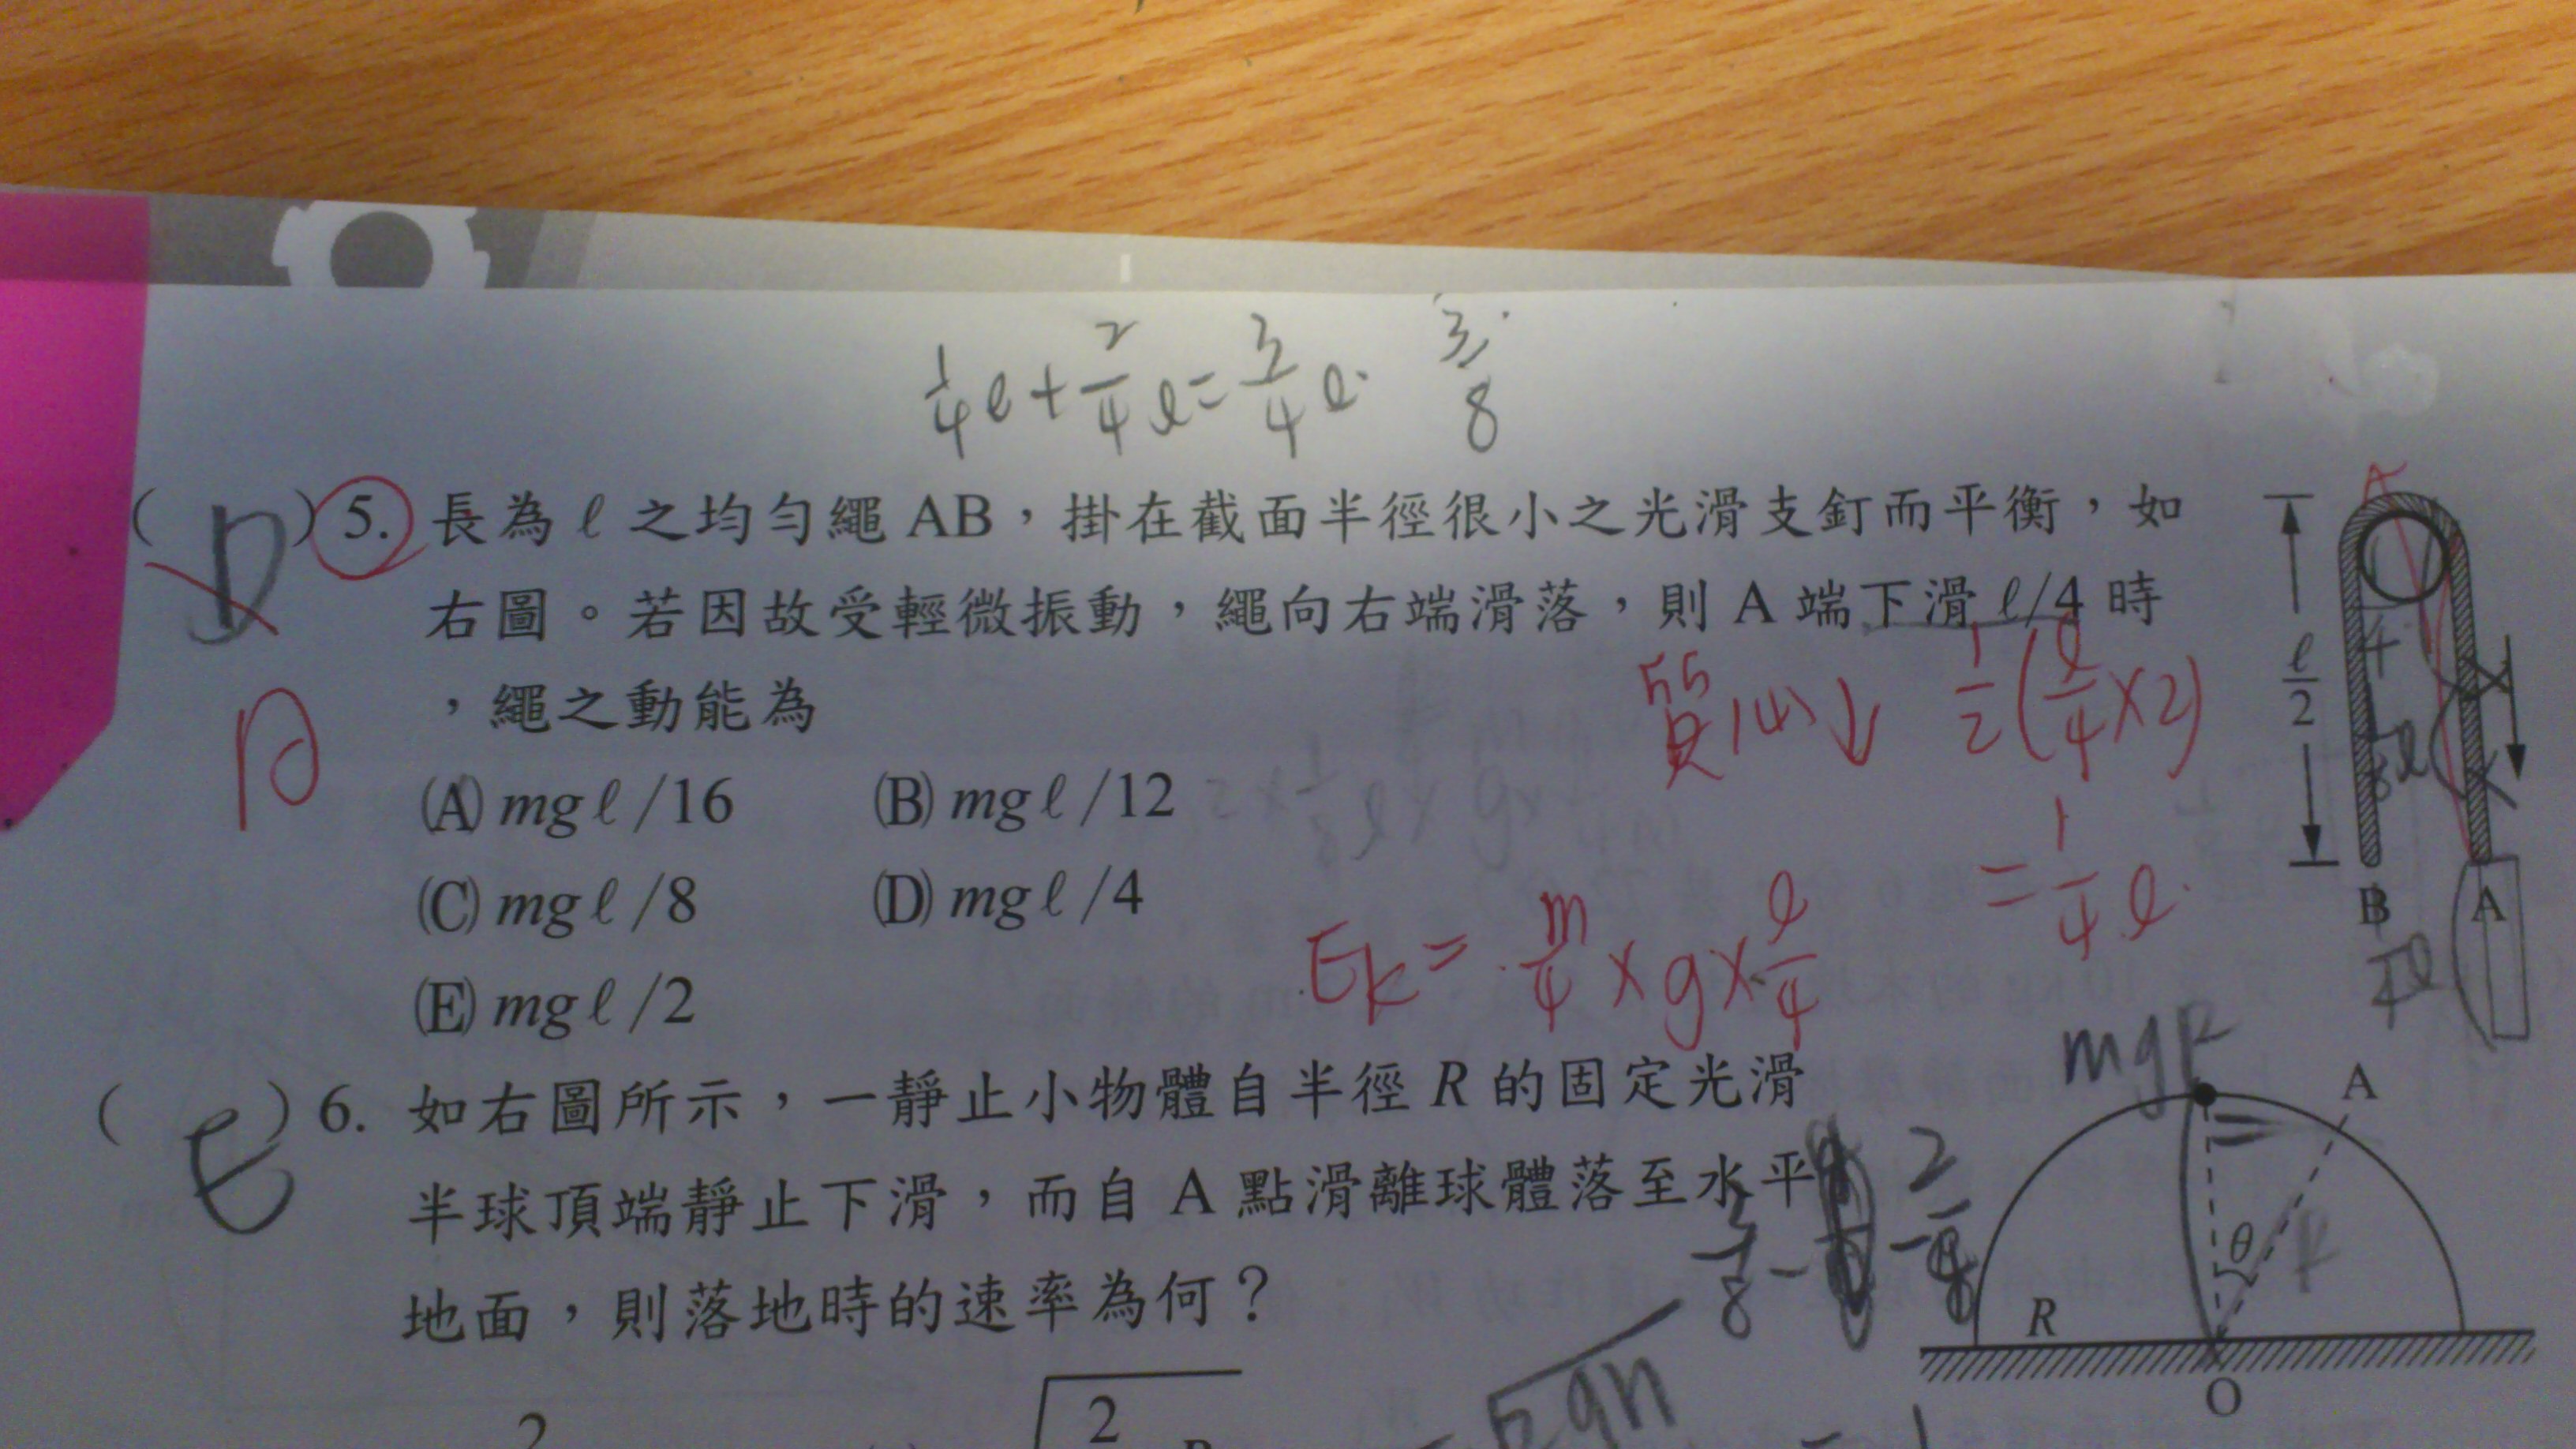 1/4 ℓ + 2/4 ℓ = 3/4 ℓ 3/8
( D ) 5. 長為 ℓ 之均勻繩 AB，掛在截面半徑很小之光滑支釘而平衡，如
右圖。若因故受輕微振動，繩向右端滑落，則 A 端下滑 ℓ/4 時
，繩之動能為
A
質心↓ 1/2(ℓ/4×2)
= 1/4 ℓ
(A) mgℓ/16 (B) mgℓ/12
(C) mgℓ/8 (D) mgℓ/4
(E) mgℓ/2
Ek = m/4 × g × ℓ/4
ℓ/2
B A
( E ) 6. 如右圖所示，一靜止小物體自半徑 R 的固定光滑
半球頂端靜止下滑，而自 A 點滑離球體落至水平
地面，則落地時的速率為何？
mgR
A
θ
R
R
O
2
2